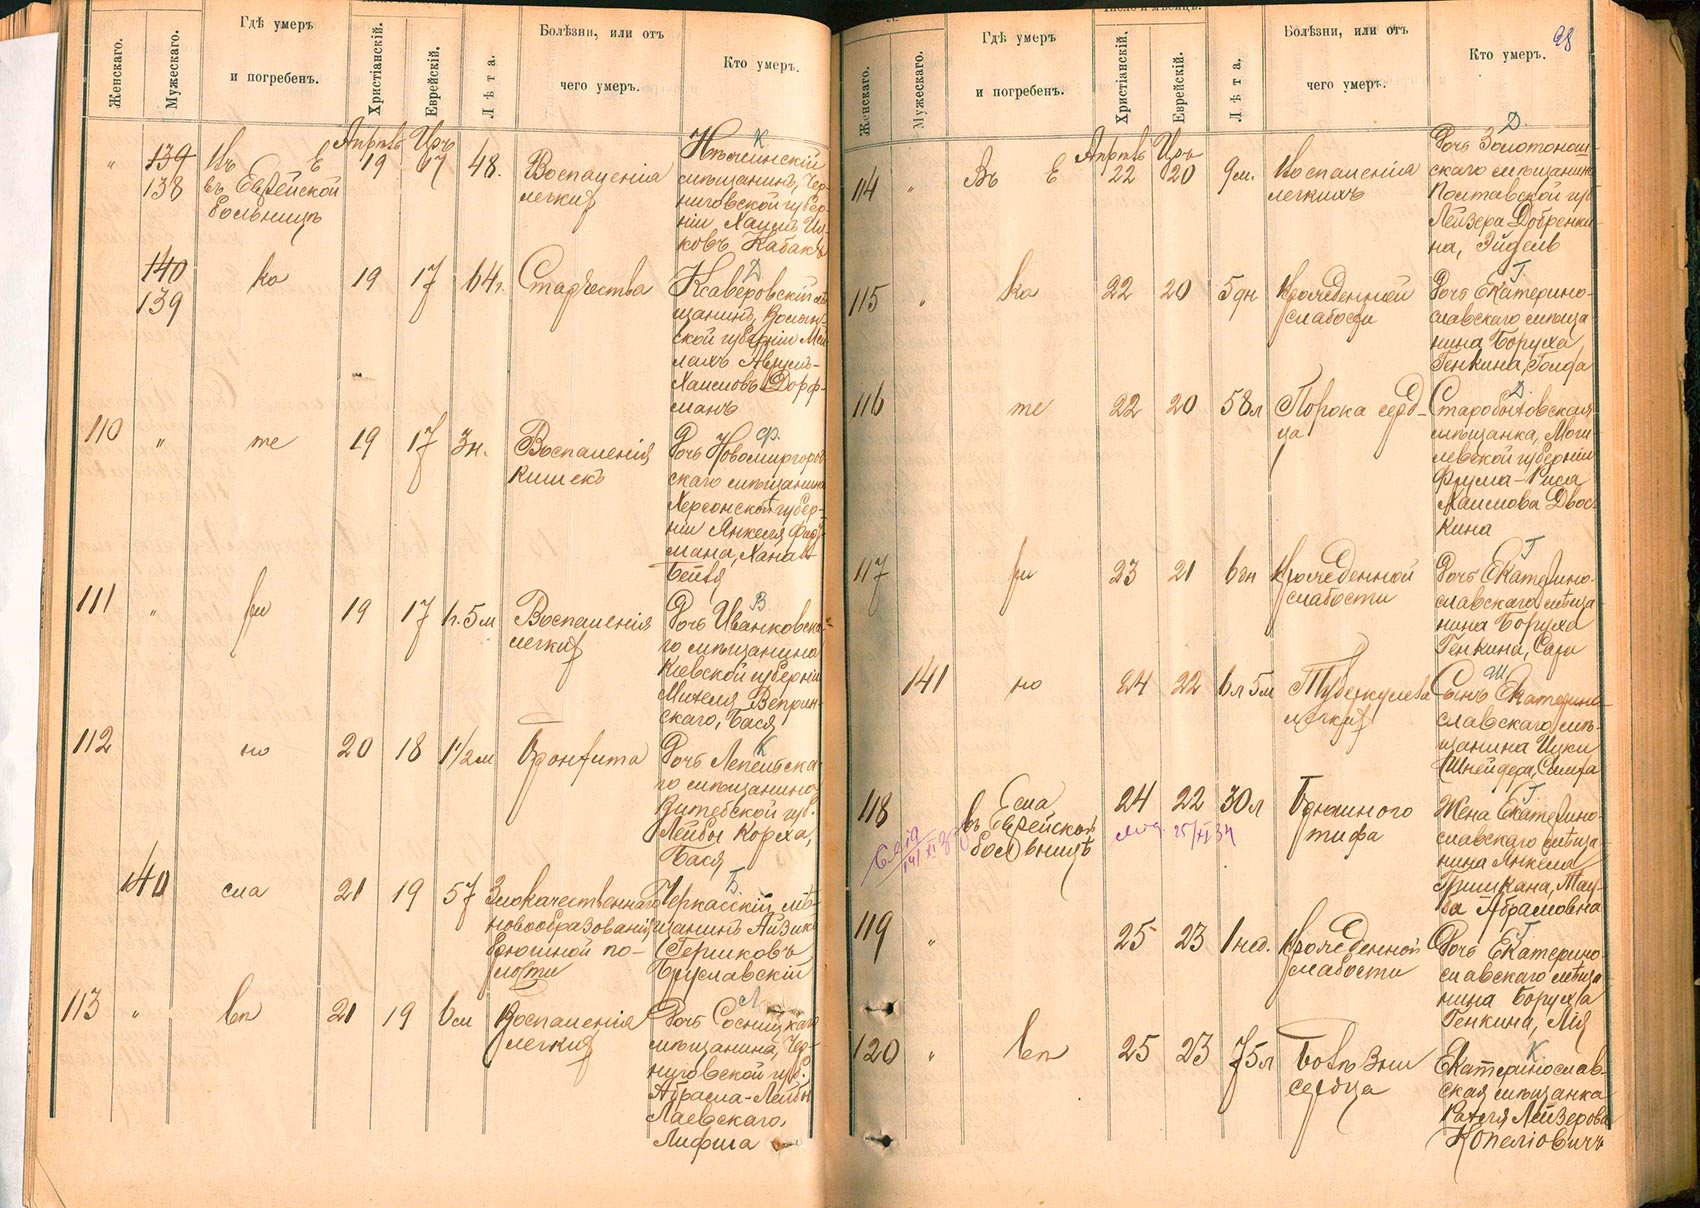 Женскаго.
Мужескаго.
Гдѣ умеръ
и погребенъ.
Христіанскій.
Еврейскій.
Лѣта.
Болѣзни, или отъ
чего умеръ.
Кто умеръ.
Апрѣль Иръ
"
139
138
въ Еврейской
больницѣ
19
17
48.
Воспаленія
легкихъ
К
мѣщанинъ, Чер-
ниговской губер-
ніи Хаимъ Иц-
ковъ Кабакъ
140
139
19
17
64г.
Старчества
Д
Ксаверовскій мѣ-
щанинъ, Волын-
ской губерніи Мей-
лахъ Аврумъ-
Хаимовъ Дорф-
манъ
110
"
те
19
17
3н.
Воспаленія
кишекъ
Ф.
Дочь Новомиргород-
скаго мѣщанина
Херсонской губер-
ніи Янкеля
мана, Хана-
Бейля
111
"
19
17
1г. 5м
Воспаленія
легкихъ
В
Дочь Иванковска-
го мѣщанина
Кіевской губерніи
Михеля Веприн-
скаго, Бася
112
но
20
18
1 1/2 м
Бронхита
К
го мѣщанина
Витебской губ.
Лейбы Корха,
Бася
140
сла
21
19
57
Злокачественнаго
новообразованія
брюшной по-
лости
Б
Черкасскій мѣ-
щанинъ Айзикъ
Гершковъ
Бруславскій
113
"
21
19
6м
Воспаленія
легкихъ
Л
Дочь Сосницкаго
мѣщанина, Чер-
ниговской губ.
Абрама-Лейбы
Лаевскаго,
Лифша
Женскаго.
Мужескаго.
Гдѣ умеръ
и погребенъ.
Число и мѣсяцъ.
Христіанскій.
Еврейскій.
Лѣта.
Болѣзни, или отъ
чего умеръ.
Кто умеръ.
Апрѣль Иръ
114
"
Въ Е
22
20
9м.
Воспаленія
легкихъ
Д
Дочь Золотонош-
скаго мѣщанина
Полтавской губ
Лейзера Добренки-
на, Эйдель
115
"
ка
22
20
5дн
Врожденной
слабости
Г
Дочь Екатерино-
славскаго мѣща-
нина Боруха
Генкина, Голда
116
те
22
20
58л
Порока серд-
ца
Д
Старобыховская
мѣщанка, Моги-
левской губерніи
Фрума-Риса
Хаимова Двос-
кина
117
23
21
6дн
Врожденной
слабости
Г
Дочь Екатерино-
славскаго мѣща-
нина Боруха
Генкина, Сара
141
но
24
22
6л 5м
Туберкулеза
легкихъ
Ш
Сынъ Екатерино-
славскаго мѣ-
щанина Ицки
Шнейдера,
118
сла
въ Еврейской
больницѣ
24
22
30л
Брюшного
тифа
Г
Жена Екатерино-
славскаго мѣща-
нина Янкеля
Гришкана, Тау-
ба Абрамовна
119
"
25
23
1нед.
Врожденной
слабости
Г
Дочь Екатерино-
славскаго мѣща-
нина Боруха
Генкина, Лія
120
"
25
23
75л
Болѣзни
сердца
К
Екатеринослав-
ская мѣщанка
Рахля Лейзерова
Копеліовичъ